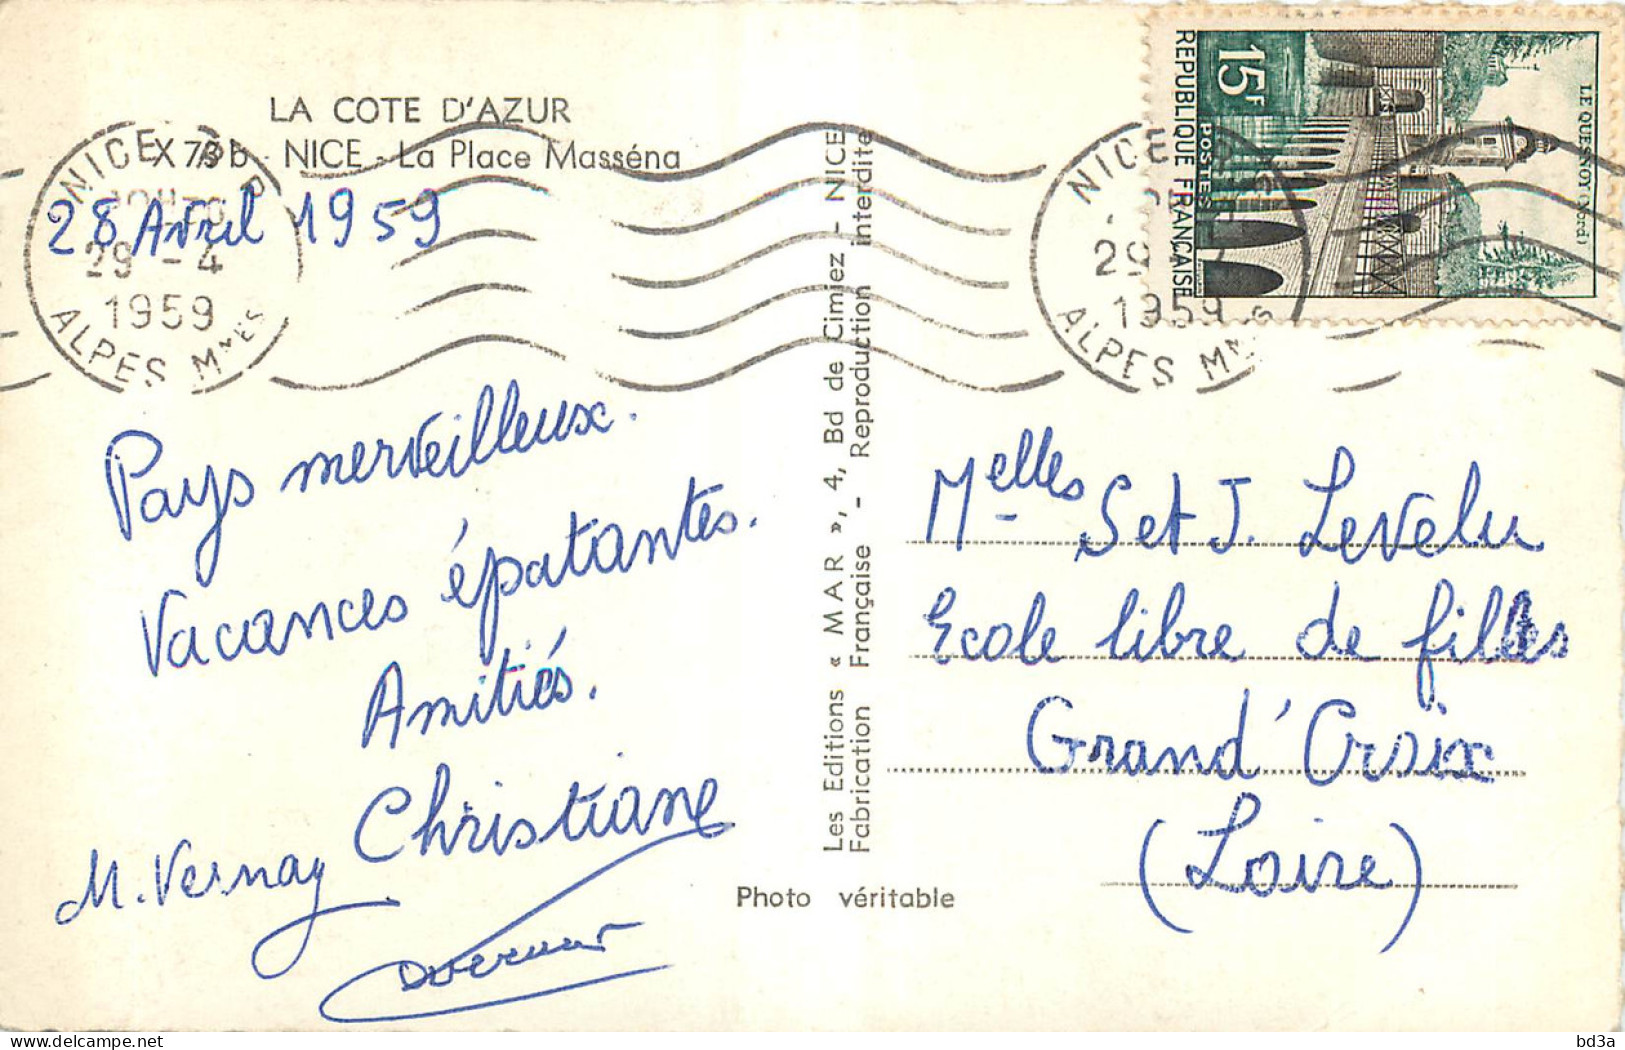 LA COTE D'AZUR
X 78 b - NICE - La Place Masséna
28 Avril 1959
NICE
29 - 4
1959
ALPES Mmes
Pays merveilleux.
Vacances épatantes.
Amitiés.
Christiane
M. Vernay
Les Editions « MAR », 4, Bd de Cimiez - NICE
Fabrication Française - Reproduction interdite
Photo véritable
NICE
29
1959
ALPES Mmes
15F
POSTES
REPUBLIQUE FRANÇAISE
LE QUESNOY (Nord)
Melles S et J. Levelu
Ecole libre de filles
Grand'Croix
(Loire)
bd3a